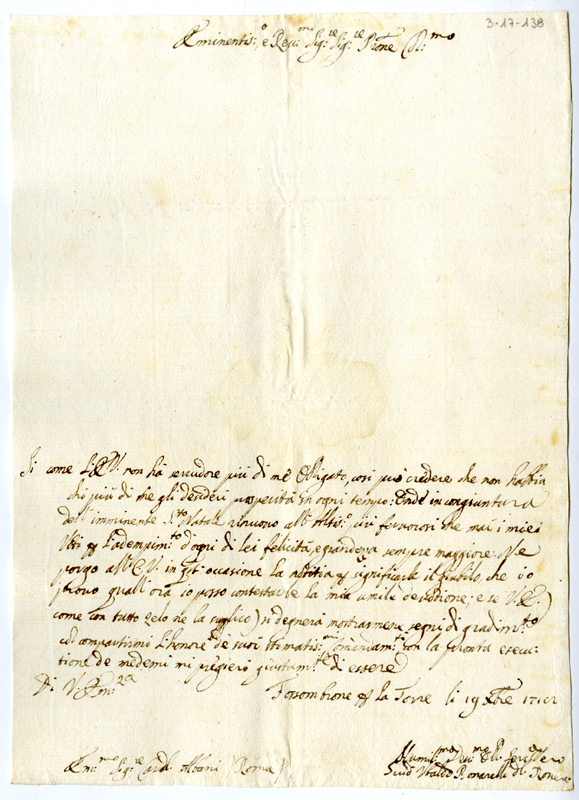 3-17-138
Eminentis:º e Reu:mo Sig:re Sig:re Prõne Col:mo
Si come L'E.V. non hà seruidore più di me Obligato, così può credere che non habbia
chi più di me gli desideri prosperità in ogni tempo: Onde in congiuntura
dell' imminente S.to Natale rinuouo all' Altis:º più feruorosi che mai i miei
Voti l'adempim:to d'ogni di lei felicità, e grandezza sempre maggiore. Ne
porgo all' E.V. in q.ta occasione la notitia significarle il giubilo, che io
prouo quall' ora io posso contestarle la mia umile deuotione; e se V.E. (
come con tutto zelo ne la suplico) si degnerà mostrarmene segni di gradim:to
col compartirmi l'honore de suoi stimatis:mi Comandam:ti con la pronta esecu-
tione de medemi mi pregierò giustam:te di essere
Di V. Em:za
Fossombrone la Torre li 19 Xbre 1712
Em:mo Sig:re Card. Albani (Roma)
Humil:mo Deu:mo Obl: Seruitore
Guid' Vbaldo Bonarelli della Rouere